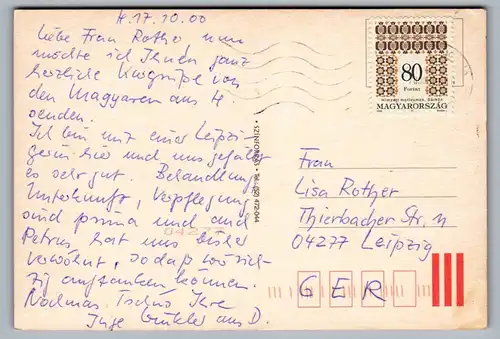 H. 17.10.00
Liebe Frau Rother nun
möchte ich Ihnen ganz
herzliche Kurgrüße von
den Magyaren aus H.
senden.
Ich bin mit einer Leipzi-
gerin hier und uns gefällt
es sehr gut. Behandlung
Unterkunft, Verpflegung
sind prima und auch
Petrus hat uns bisher
verwöhnt, so daß wir rich-
tig auftanken können.
Nochmas Tschüs Ihre
Inge aus D.
SZÍNFOLT Kft. • Tel.: (52) 472-044
80
Forint
MAGYARORSZÁG
Frau
Lisa Rother
Thierbacher Str. 11
04277 Leipzig
G E R